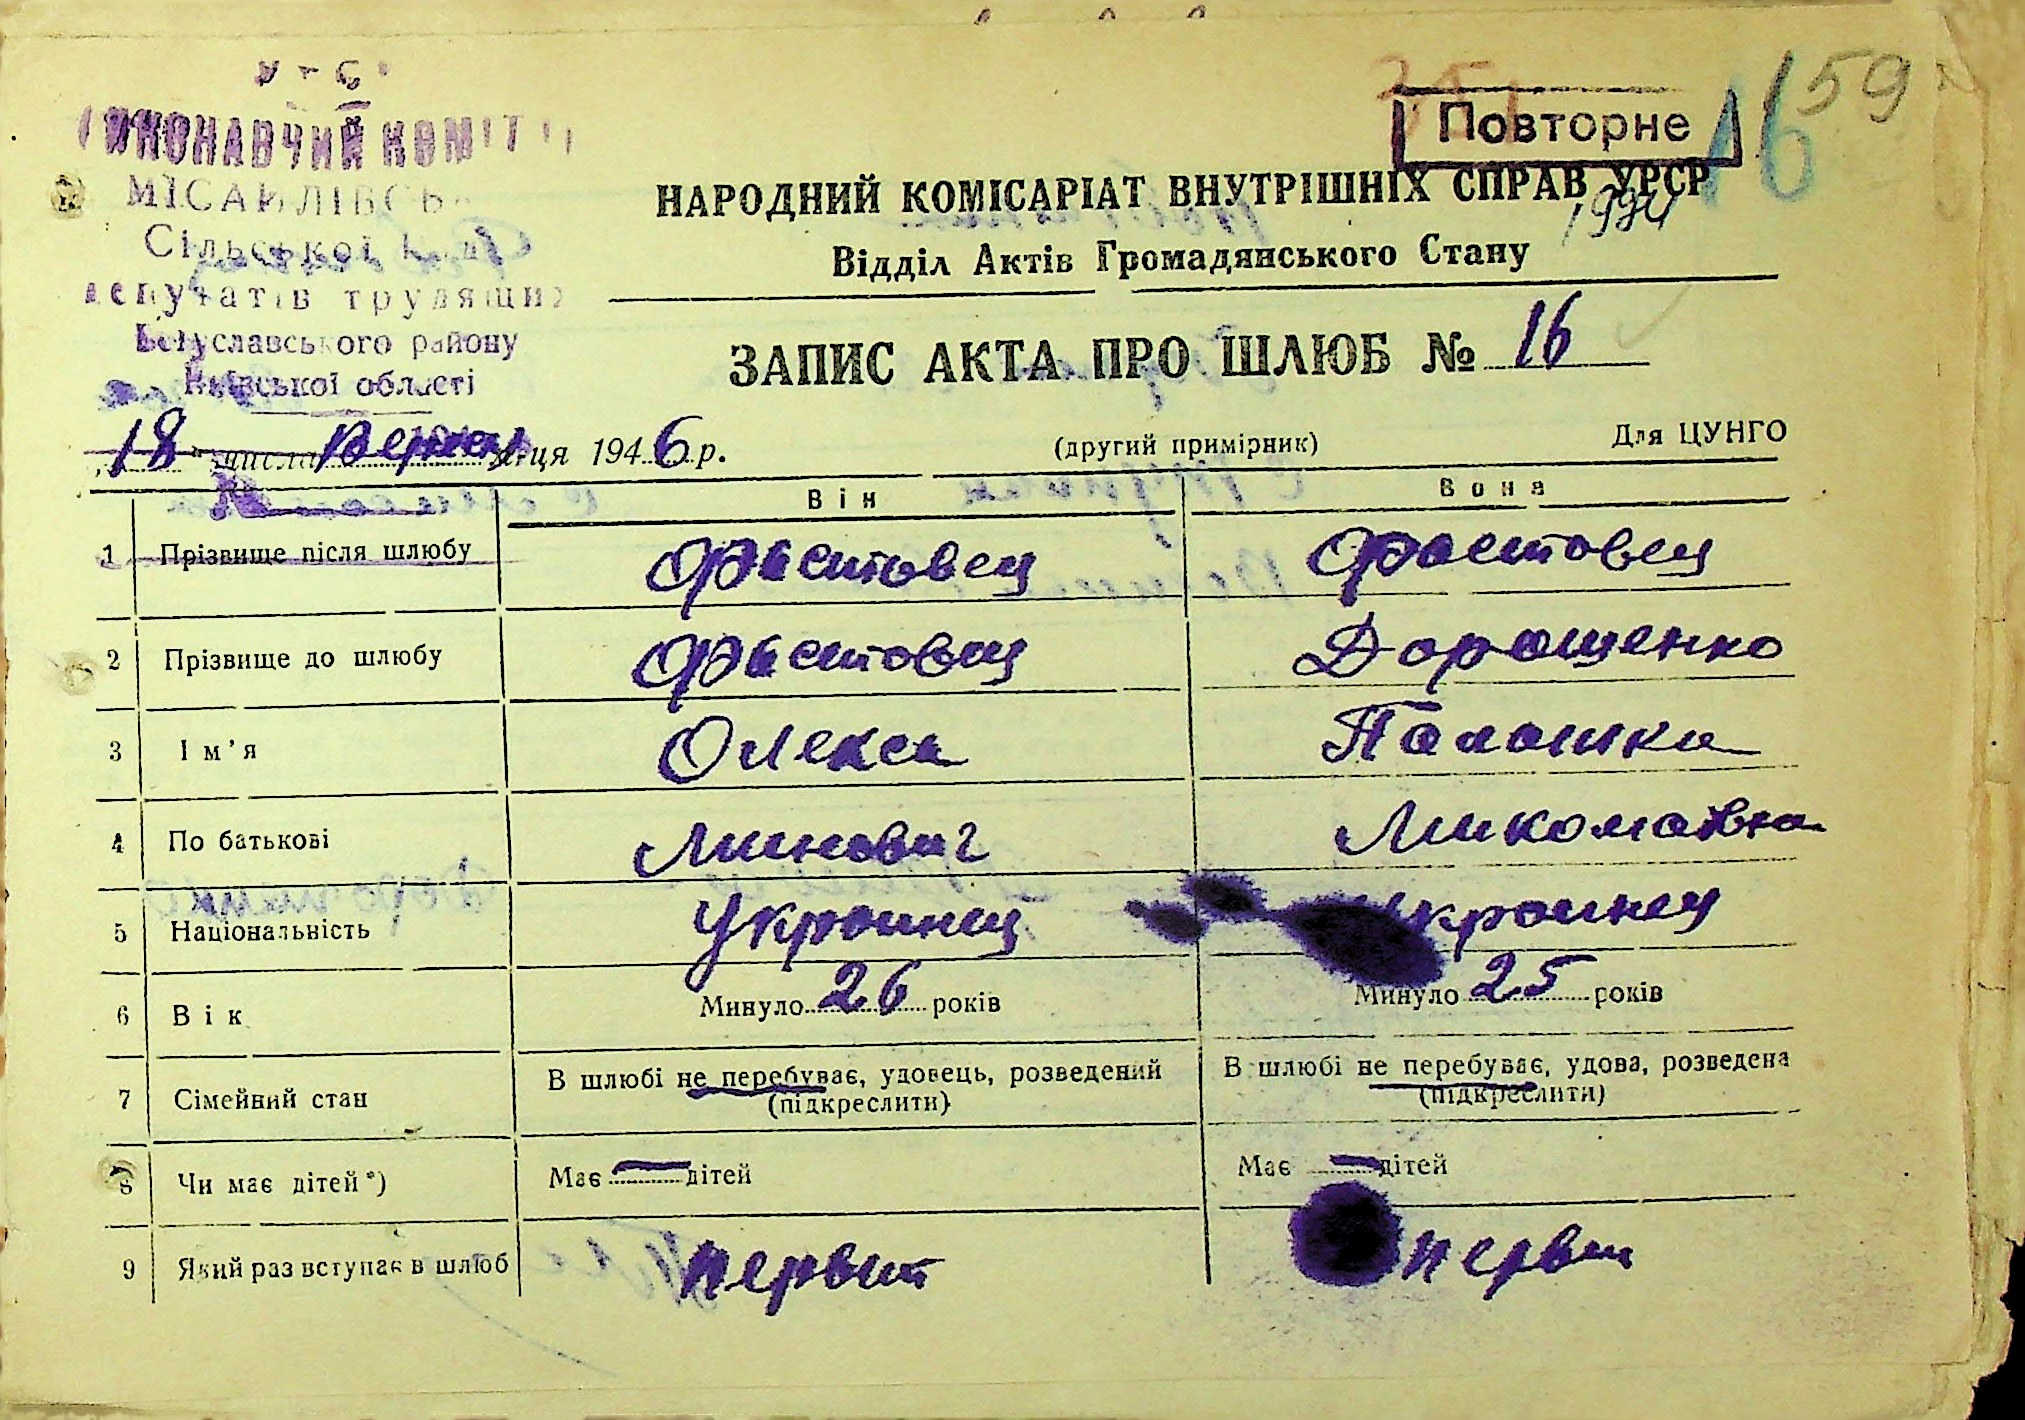 ВИКОНАВЧИЙ КОМІТЕТ
МІСАЙЛІВСЬ
Сільської
депутатів трудящих
Богуславського району
Київської області
Повторне
16
159
НАРОДНИЙ КОМІСАРІАТ ВНУТРІШНІХ СПРАВ УРСР
Відділ Актів Громадянського Стану
ЗАПИС АКТА ПРО ШЛЮБ № 16
„18" числа Вересня м-ця 1946 р.
(другий примірник)
Для ЦУНГО
Він
Вона
1 Прізвище після шлюбу Фастовец Фастовец
2 Прізвище до шлюбу Фастовец Дорошенко
3 Ім'я Олекса Палашка
4 По батькові Минович Миколаївна
5 Національність Украинец Украинец
6 Вік Минуло 26 років Минуло 25 років
7 Сімейний стан В шлюбі не перебуває, удовець, розведений В шлюбі не перебуває, удова, розведена
(підкреслити) (підкреслити)
8 Чи має дітей*) Має — дітей Має — дітей
9 Який раз вступає в шлюб первий перви